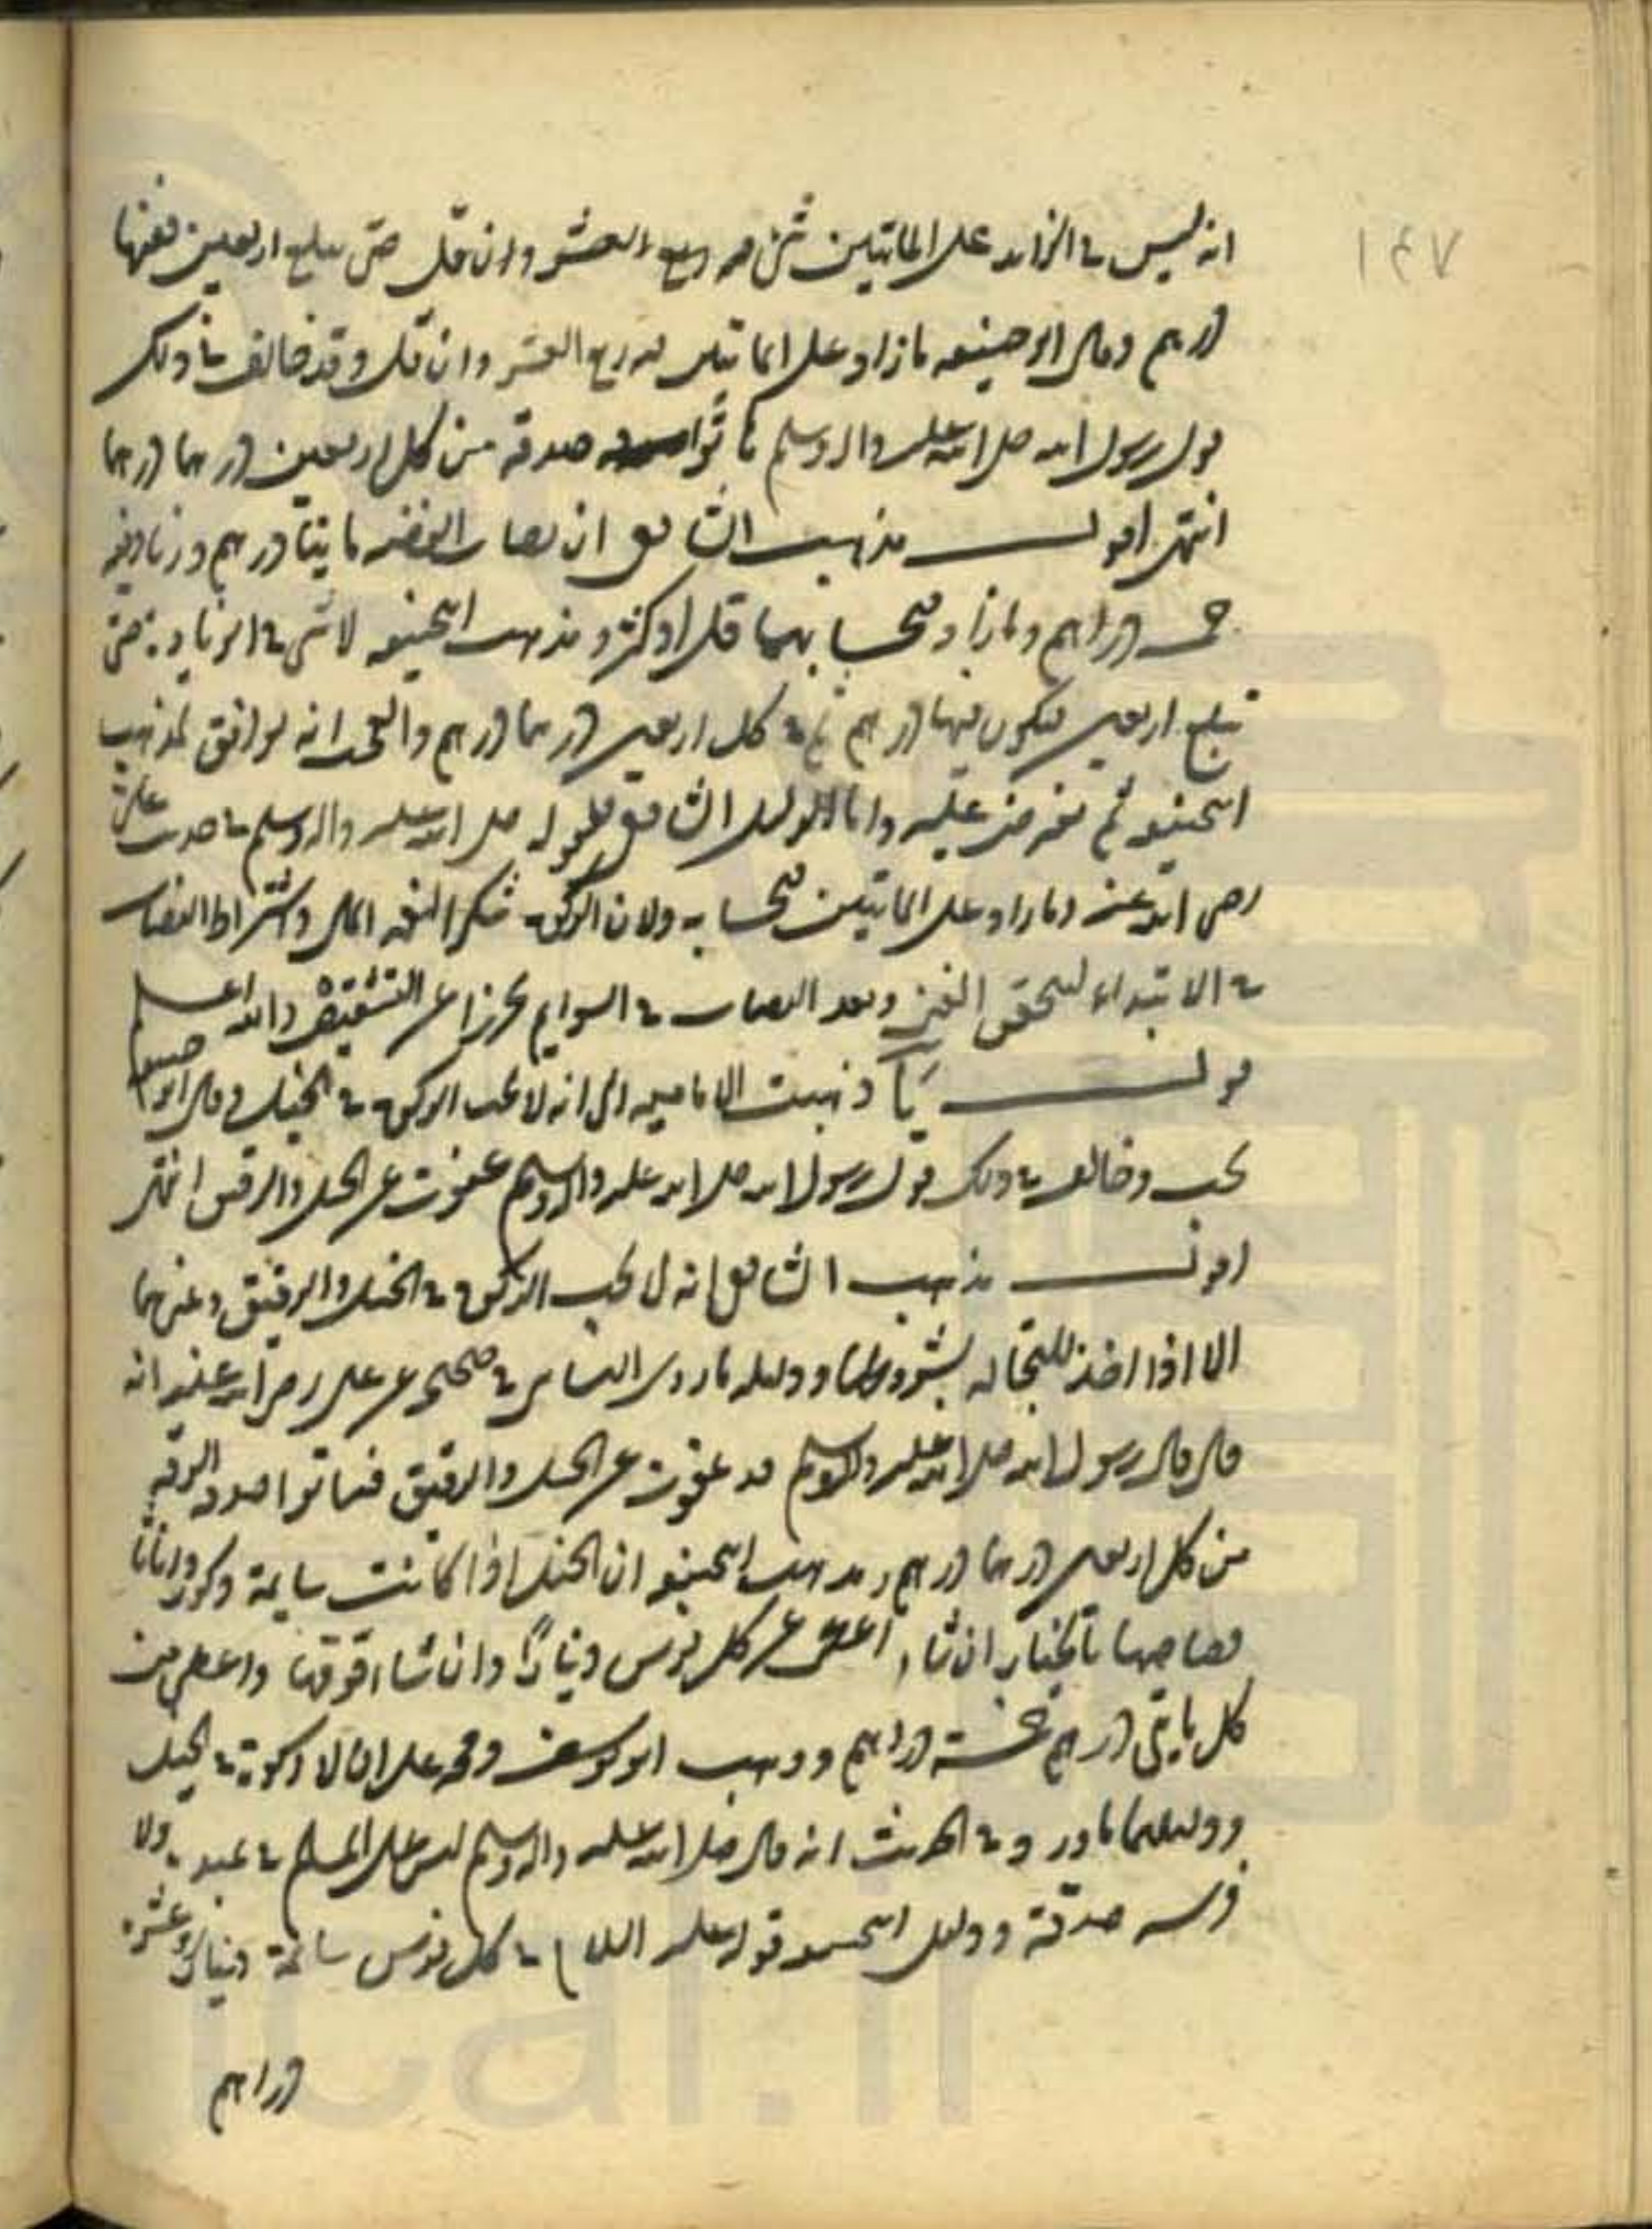 ١٤٧
انه ليس في الزايد على المائتين شئ من ربع العشر وان قل حتى يبلغ اربعين ففيها
درهم وقال ابو حنيفه ما زاد على المائتين فيه ربع العشر وان قل وقد خالف في ذلك
قول رسول الله صلى الله عليه واله وسلم هاتوا صدقة من كل اربعين درهما درهما
انتهى اقول مذهب الشافعى ان نصاب الفضه مايتا درهم وزنا وفيه
خمسه دراهم وما زاد فبحسابهما قل او كثر ومذهب الحنيفه لا شئ في الزيادة حتى
تبلغ اربعين فيكون فيها درهم ثم في كل اربعين درهما درهم والعجب انه يوافق لمذهب
الحنيفه ثم يعترض عليه واما الدليل الشافعى فلقوله صلى الله عليه واله وسلم في حديث على
رضى الله عنه وما زاد على المائتين فبحسابه ولان الزكوة شكر النعمه المال واشتراط النصاب
في الابتداء لتحقق الغنى وبعد النصاب في السوايم تحرزا عن التشقيص والله اعلم
قوله يا ذهبت الاماميه الى انه لا تجب الزكوة في الخيل وقال ابو حنيفه
تجب وخالف في ذلك قول رسول الله صلى الله عليه واله وسلم عفوت عن الخيل والرقيق انتهى
اقول مذهب الشافعى انه لا تجب الزكوة في الخيل والرقيق وغيرهما
الا اذا اخذ للتجاره بشروطها ودليله ما روى النسائى في صحيحه عن على رضى الله عنه انه
قال قال رسول الله صلى الله عليه واله وسلم قد عفوت عن الخيل والرقيق فهاتوا صدقه الرقه
من كل اربعين درهما درهم ومذهب الحنيفه ان الخيل اذا كانت سايمة ذكورا واناثا
فصاحبها بالخيار ان شاء اعطى عن كل فرس دينارًا وان شاء قومها واعطى من
كل مايتى درهم خمسة دراهم وذهب ابو يوسف ومحمد على ان لا زكوة في الخيل
ودليلهما ما ورد في الحديث انه قال صلى الله عليه واله وسلم ليس على المسلم في عبده ولا
فرسه صدقة ودليل الحنيفه قوله عليه السلام في كل فرس سائمة دينار او عشره
دراهم